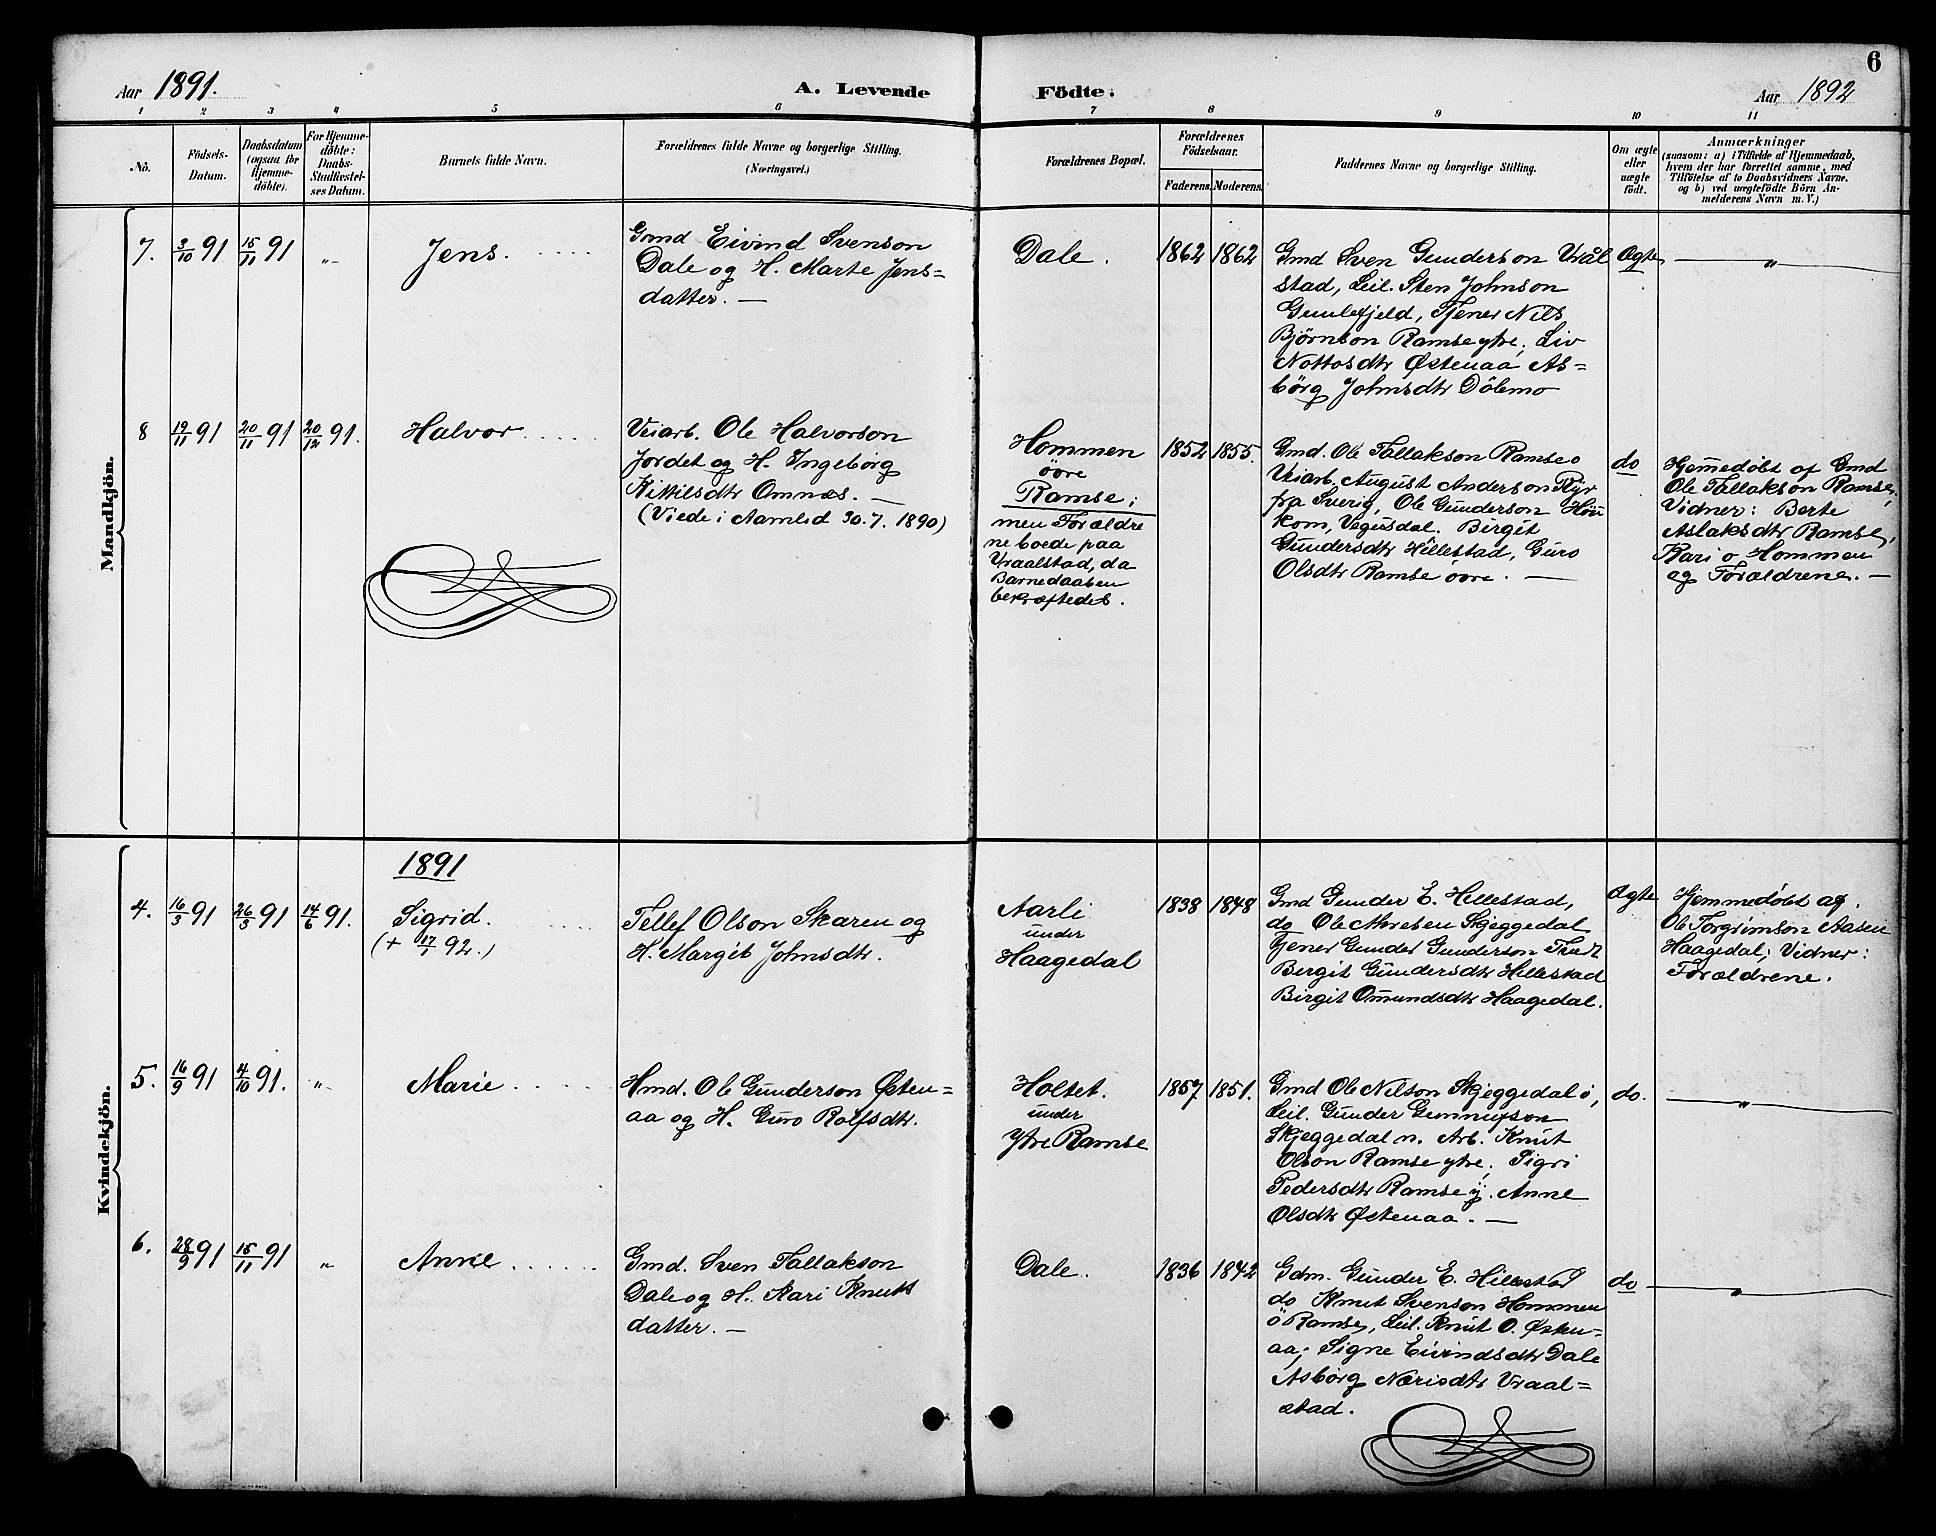 6
Aar 1891.
A. Levende
Födte:
Aar 1892
1 2 3 4 5 6 7 8 9 10 11
No.
Födsels-
Datum.
Daabsdatum
(ogsaa for
Hjemme-
döbte).
For Hjemme-
döbte:
Daabs-
Stadfæstel-
ses Datum.
Barnets fulde Navn.
Forældrenes fulde Navne og borgerlige Stilling.
(Næringsvei.)
Forældrenes Bopæl.
Forældrenes
Födselsaar.
Faderens. Moderens.
Faddernes Navne og borgerlige Stilling.
Om ægte
eller
uægte
födt.
Anmærkninger
(saasom: a) i Tilfælde af Hjemmedaab,
hvem der har forrettet samme, med
Tilföielse af to Daabsvidners Navne.
og b) ved uægtefödte Börn An-
melderens Navn m. V.)
Mandkjön.
7. 3/10 91 15/11 91 „ Jens.
Gmd Eivind Svenson
Dale og H. Marte Jens-
datter. —
Dale. 1862 1862
Gmd Sven Gunderson Vraal
stad, Leil. Sten Johnson
Gunlefjeld, Tjener Nils
Björnson Ramse ytre, Liv
Nottosdtr Østenaa As-
börg Johnsdtr Dölemo
Ægte „
8 19/11 91 20/11 91 20/12 91. Halvor
Veiarb. Ole Halvorson
Jordet og H. Ingebörg
Kittilsdtr Omnæs. —
(Viede i Aamlid 30.7. 1890)
Hommen
övre
Ramse;
men Forældre
ne boede paa
Vraalstad, da
Barnedaaben
bekræftedes.
1852 1855.
Gmd. Ole Tallakson Ramse o
Veiarb. August Anderson Kyr
fra Sverig, Ole Gunderson Höu
kom, Vegusdal. Birgit
Gundersdtr Hillestad, Guro
Olsdtr Ramse övre. —
do
Hjemedöbt af Gmd
Ole Tallakson Ramse,
Vidner: Berte
Aslaksdtr Ramse,
Kari o Hommen
og Forældrene. —
Kvindekjön.
1891
4. 16/3 91 26/3 91 14/6 91. Sigrid.
(+ 17/7 92.)
Tellef Olson Skaren og
H. Margit Johnsdtr.
Aarli
under
Haagedal
1838 1848
Gmd Gunder E. Hillestad,
do Ole Skjeggedal
Tjener Gunder Gunderson
Bergit Gundersdtr Hillestad
Birgit Omundsdtr Haagedal.
Ægte
Hjemmedöbt af
Ole Torgrimson Aasen
Haagedal; Vidner:
Forældrene.
5. 16/9 91 4/10 91. „ Marie
Hmd. Ole Gunderson Østen-
aa og H. Guro Rolfsdtr.
Holtet.
under
Ytre Ramse
1857 1851.
Gmd Ole Nilson Skjeggedal ö,
Leil. Gunder
Skjeggedal n. Arb. Knut
Olson Ramse ytre, Sigri
Pedersdtr Ramse y. Anne
Olsdtr Østenaa. —
do. „
6. 28/9 91 15/11 91 „ Anne
Gmd. Sven Tallakson
Dale og H. Kari Knuts
datter. —
Dale. 1836 1842
Gdm. Gunder E. Hillestad
do Knut Svenson Hommen
ö Ramse, Leil. Knut O. Østen-
aa; Signe Eivindsdtr Dale
Asbörg Nærisdtr Vraal-
stad.
do „